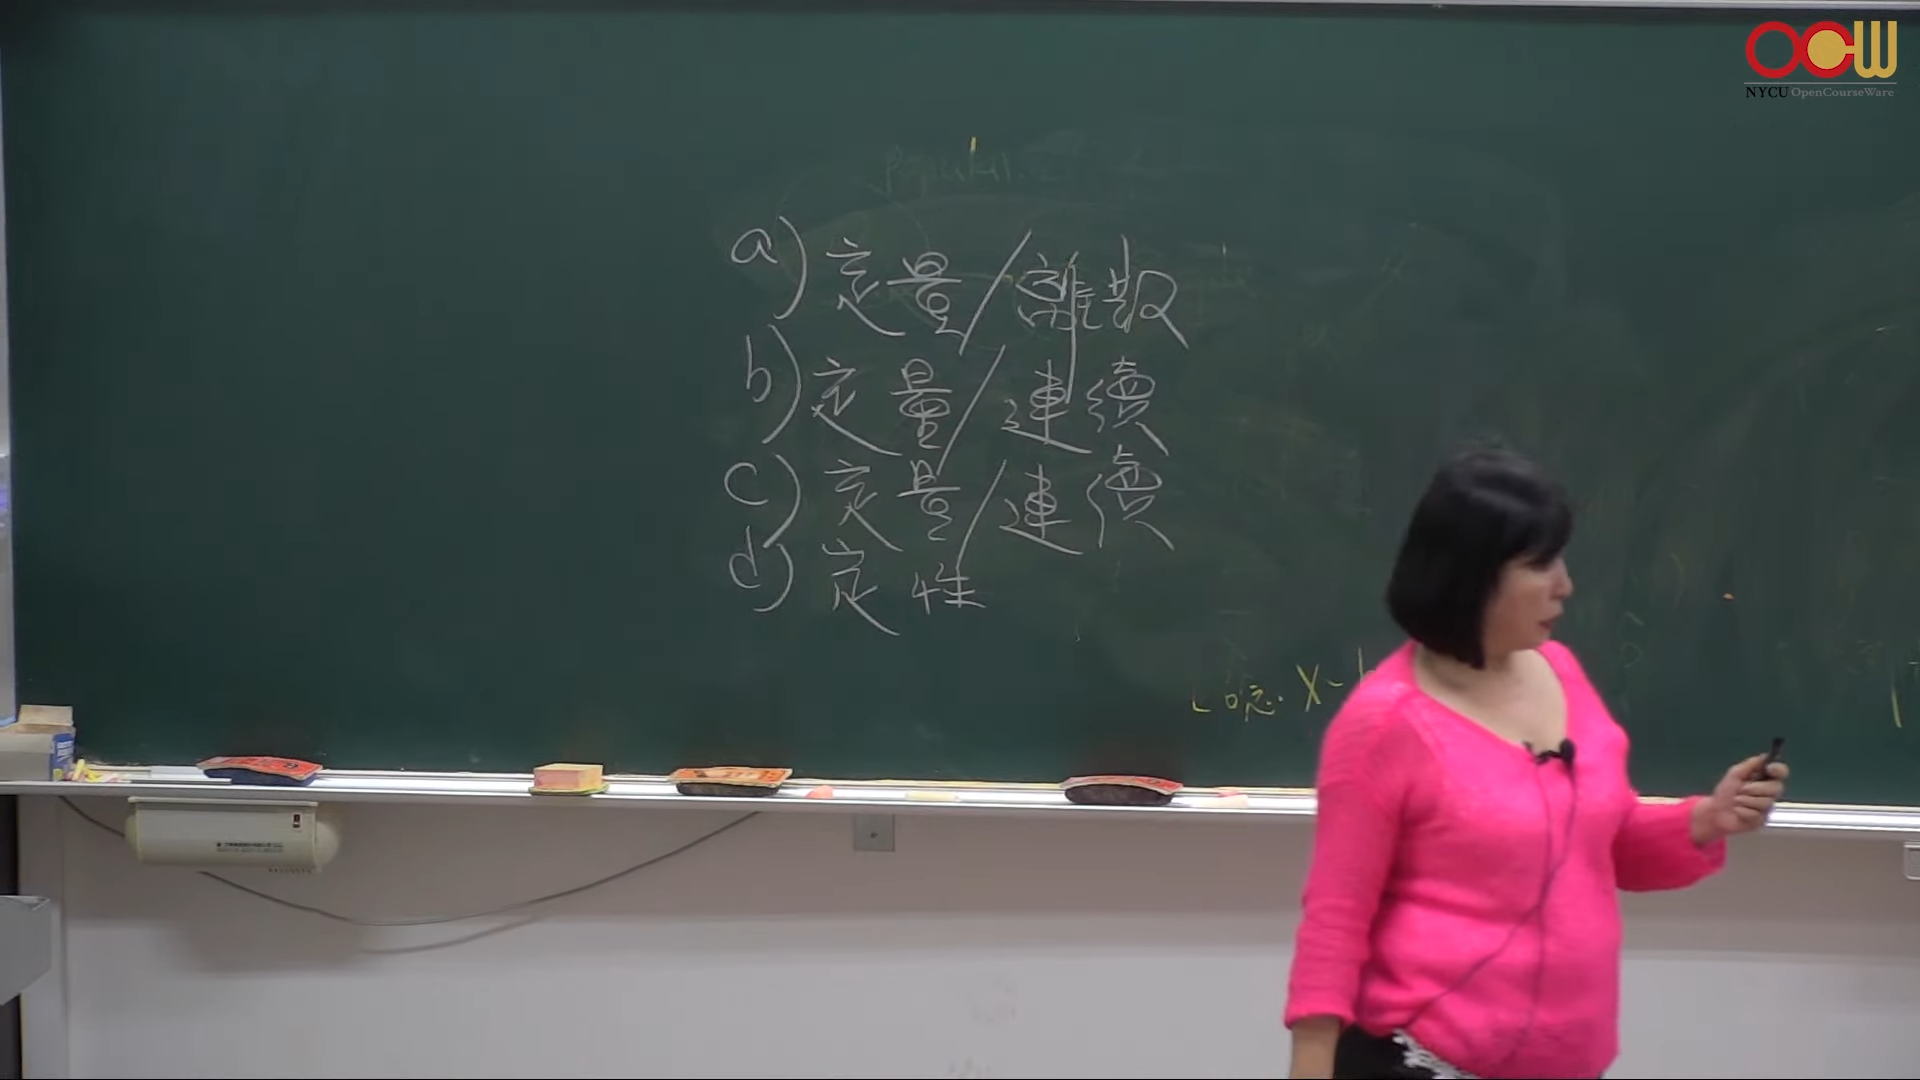 OCW
NYCU OpenCourseWare
a) 定量/離散
b) 定量/連續
c) 定量/連續
d) 定性